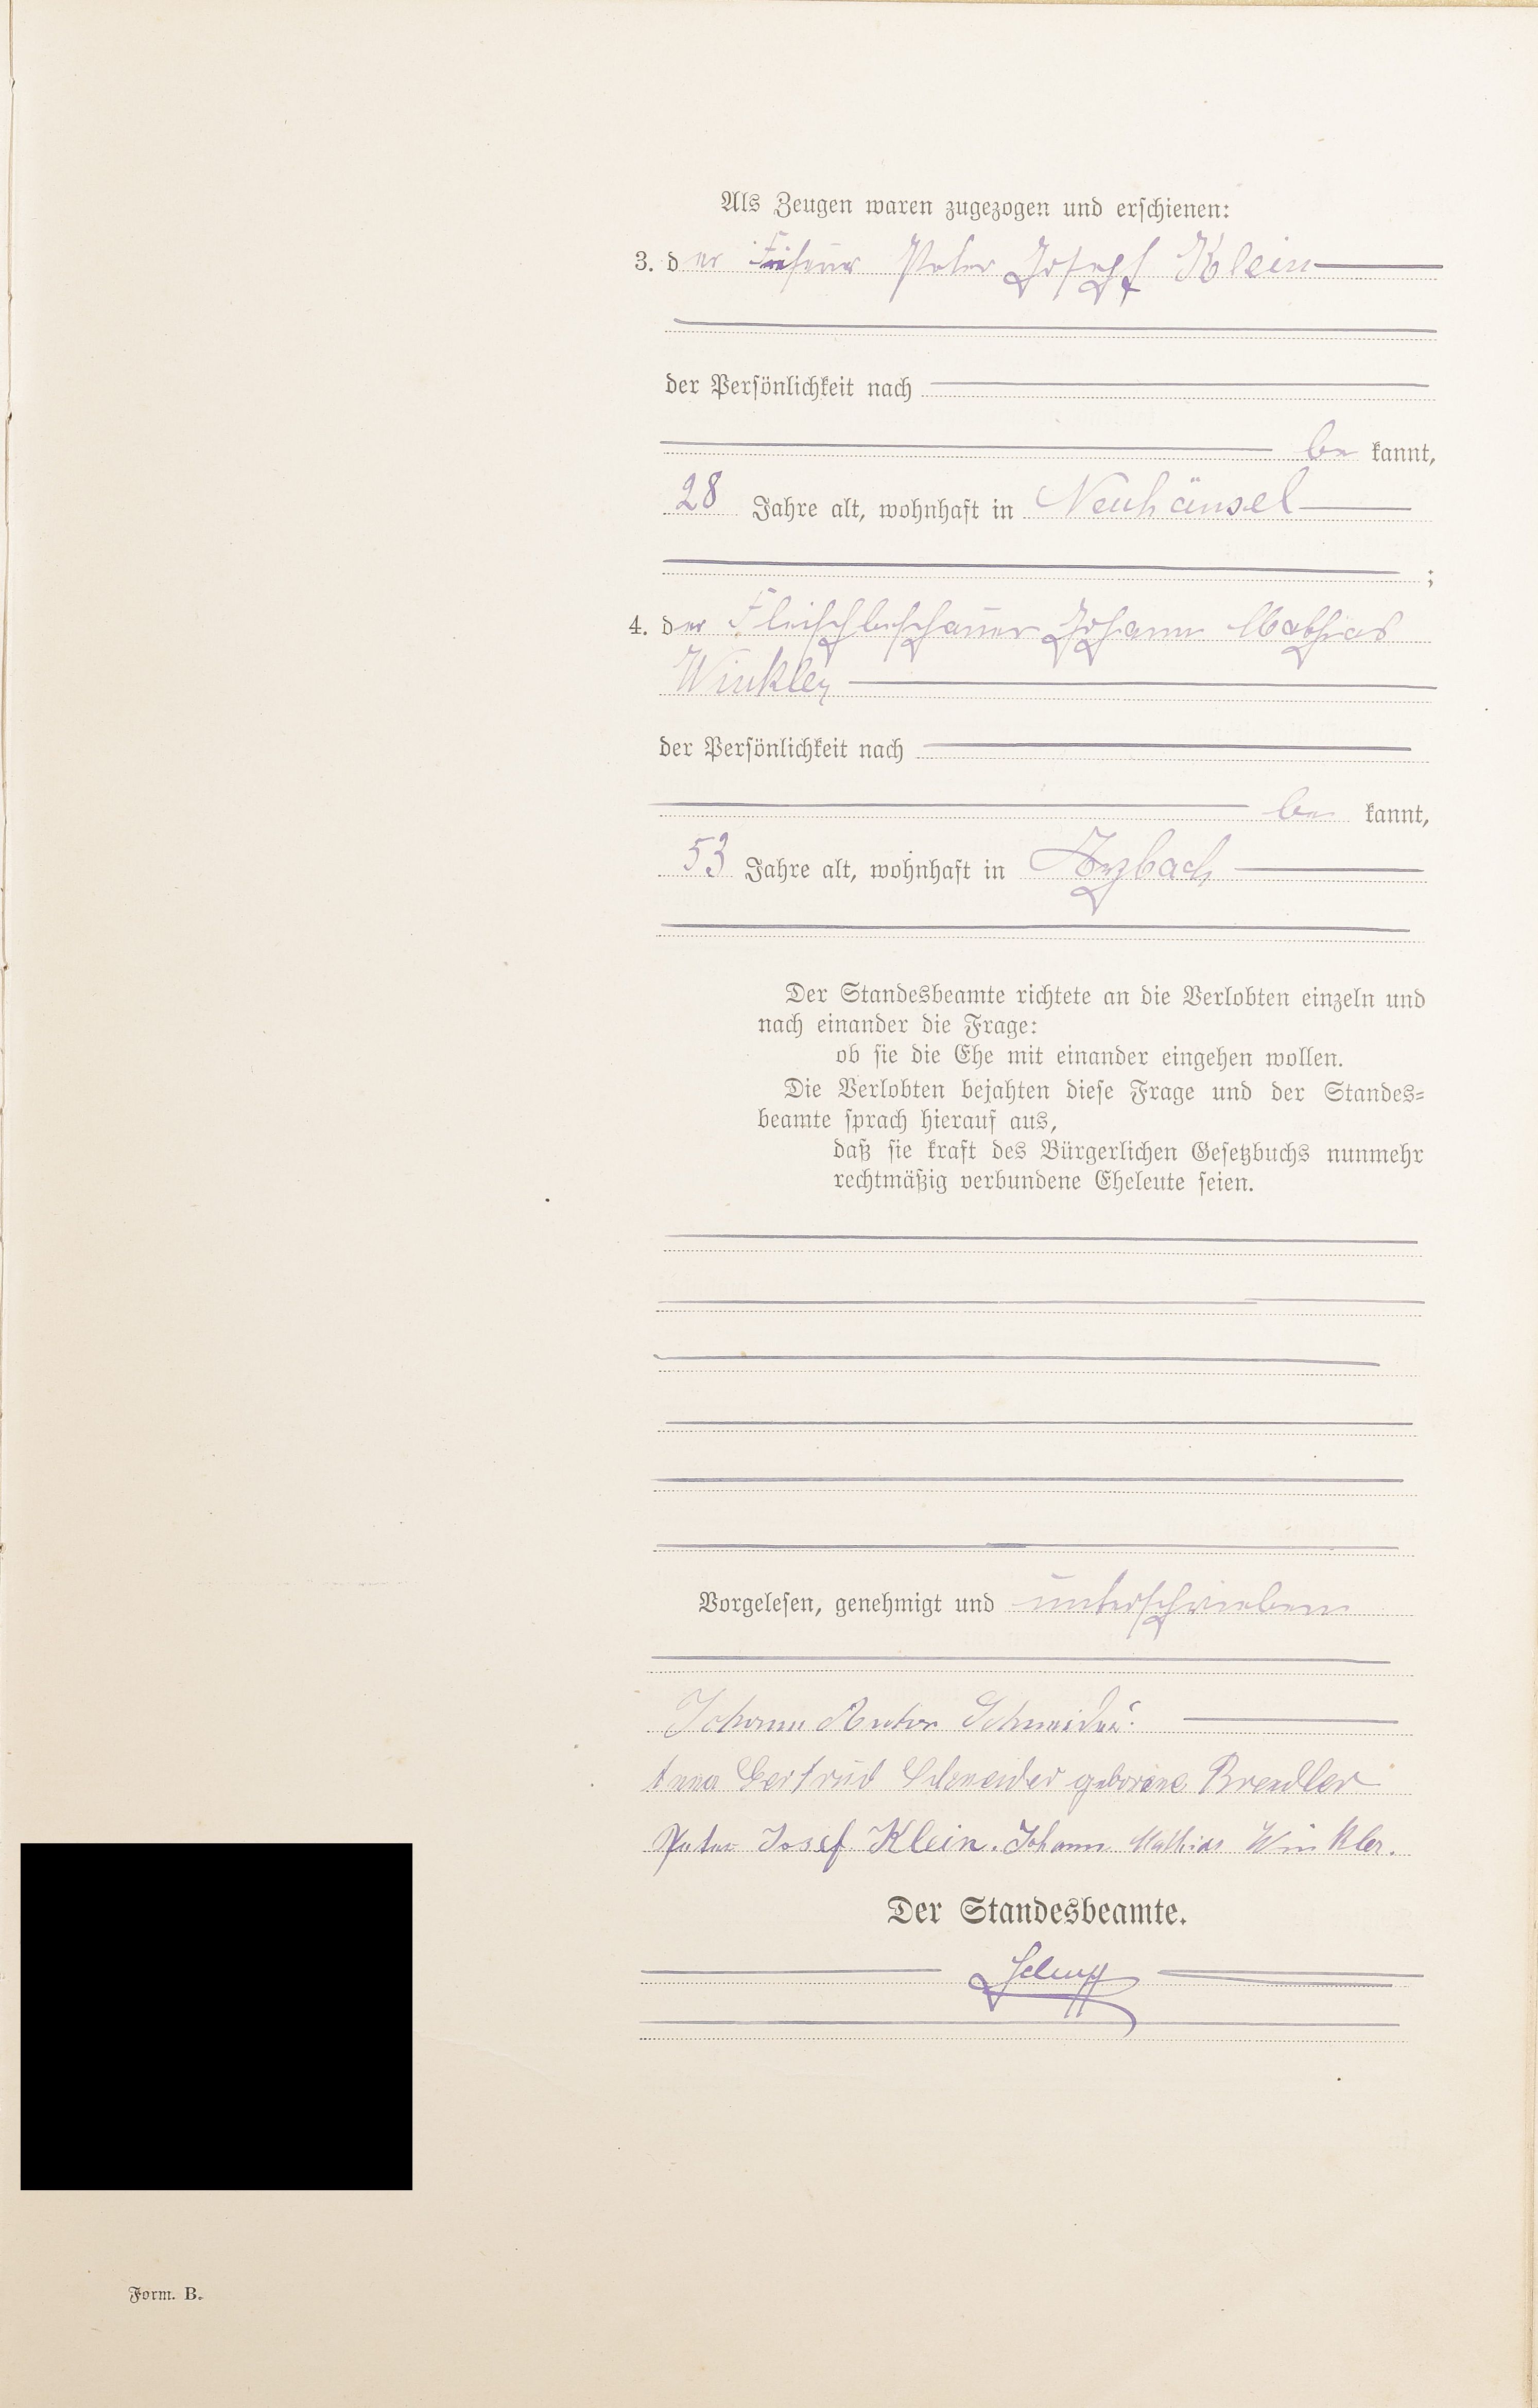 Als Zeugen waren zugezogen und erschienen:
3. der Friseur Peter Joseph Klein
der Persönlichkeit nach
be kannt,
28 Jahre alt, wohnhaft in Neuhäusel
;
4. der Fleischbeschauer Johann Mathias
Winkler
der Persönlichkeit nach
be kannt,
53 Jahre alt, wohnhaft in Arzbach
Der Standesbeamte richtete an die Verlobten einzeln und
nach einander die Frage:
ob sie die Ehe mit einander eingehen wollen.
Die Verlobten bejahten diese Frage und der Standes-
beamte sprach hierauf aus,
daß sie kraft des Bürgerlichen Gesetzbuchs nunmehr
rechtmäßig verbundene Eheleute seien.
Vorgelesen, genehmigt und unterschrieben
Johann Anton Schneider.
Anna Gertrud Schneider geborene Brendler
Peter Josef Klein. Johann Mathias Winkler.
Der Standesbeamte.
Form. B.